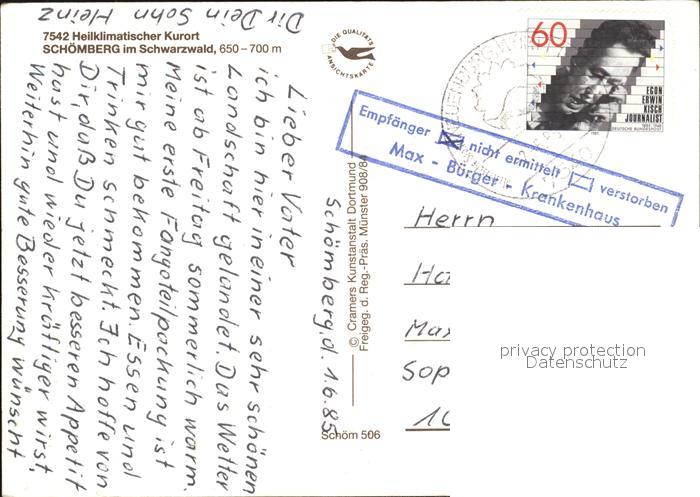 7542 Heilklimatischer Kurort
SCHÖMBERG im Schwarzwald, 650 – 700 m
DIE QUALITÄTS
ANSICHTSKARTE
60
EGON
ERWIN
KISCH
JOURNALIST
1885-1948
DEUTSCHE BUNDESPOST
1985
NEUENBÜRG
Empfänger ☒ nicht ermittelt ☐ verstorben
Max - Bürger - Krankenhaus
© Cramers Kunstanstalt Dortmund
Freigeg. d. Reg.-Präs. Münster 908/84
Schömberg, d. 1.6.85
Lieber Vater
ich bin hier in einer sehr schönen
Landschaft gelandet. Das Wetter
ist ab Freitag sommerlich warm.
Meine erste Fangoteilpackung ist
mir gut bekommen. Essen und
Trinken schmeckt. Ich hoffe von
Dir, daß Du jetzt besseren Appetit
hast und wieder kräftiger wirst.
Weiterhin gute Besserung wünscht
Dir Dein Sohn Heinz
Herrn
Max
Sop
10
Schöm 506
privacy protection
Datenschutz